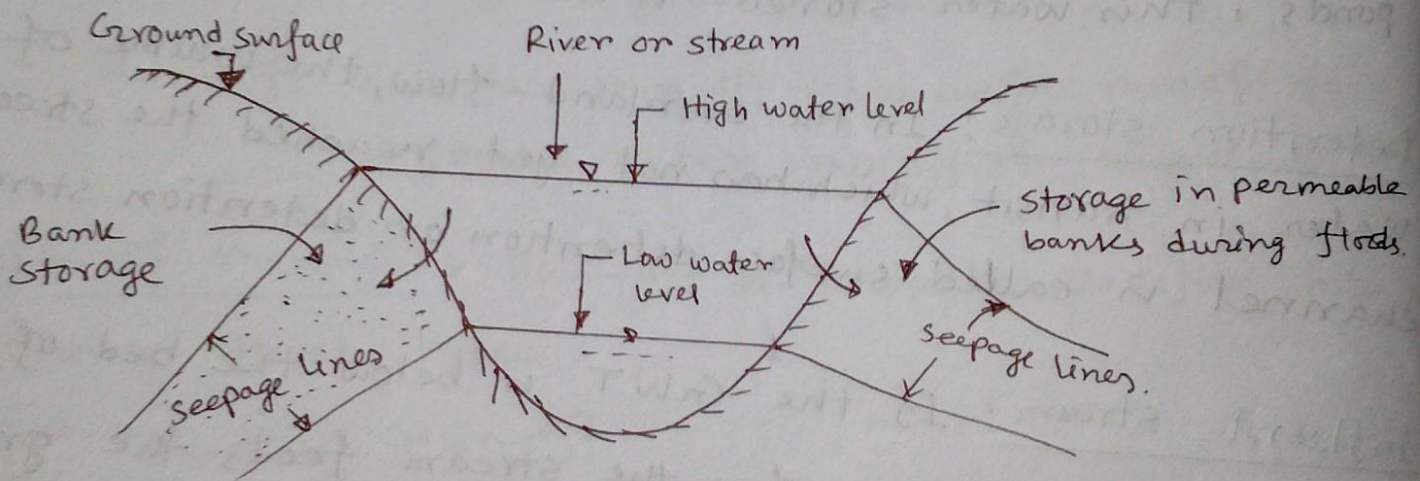 Ground surface
River or stream
High water level
Bank
storage
Low water
level
Storage in permeable
banks during floods.
Seepage lines
Seepage lines.